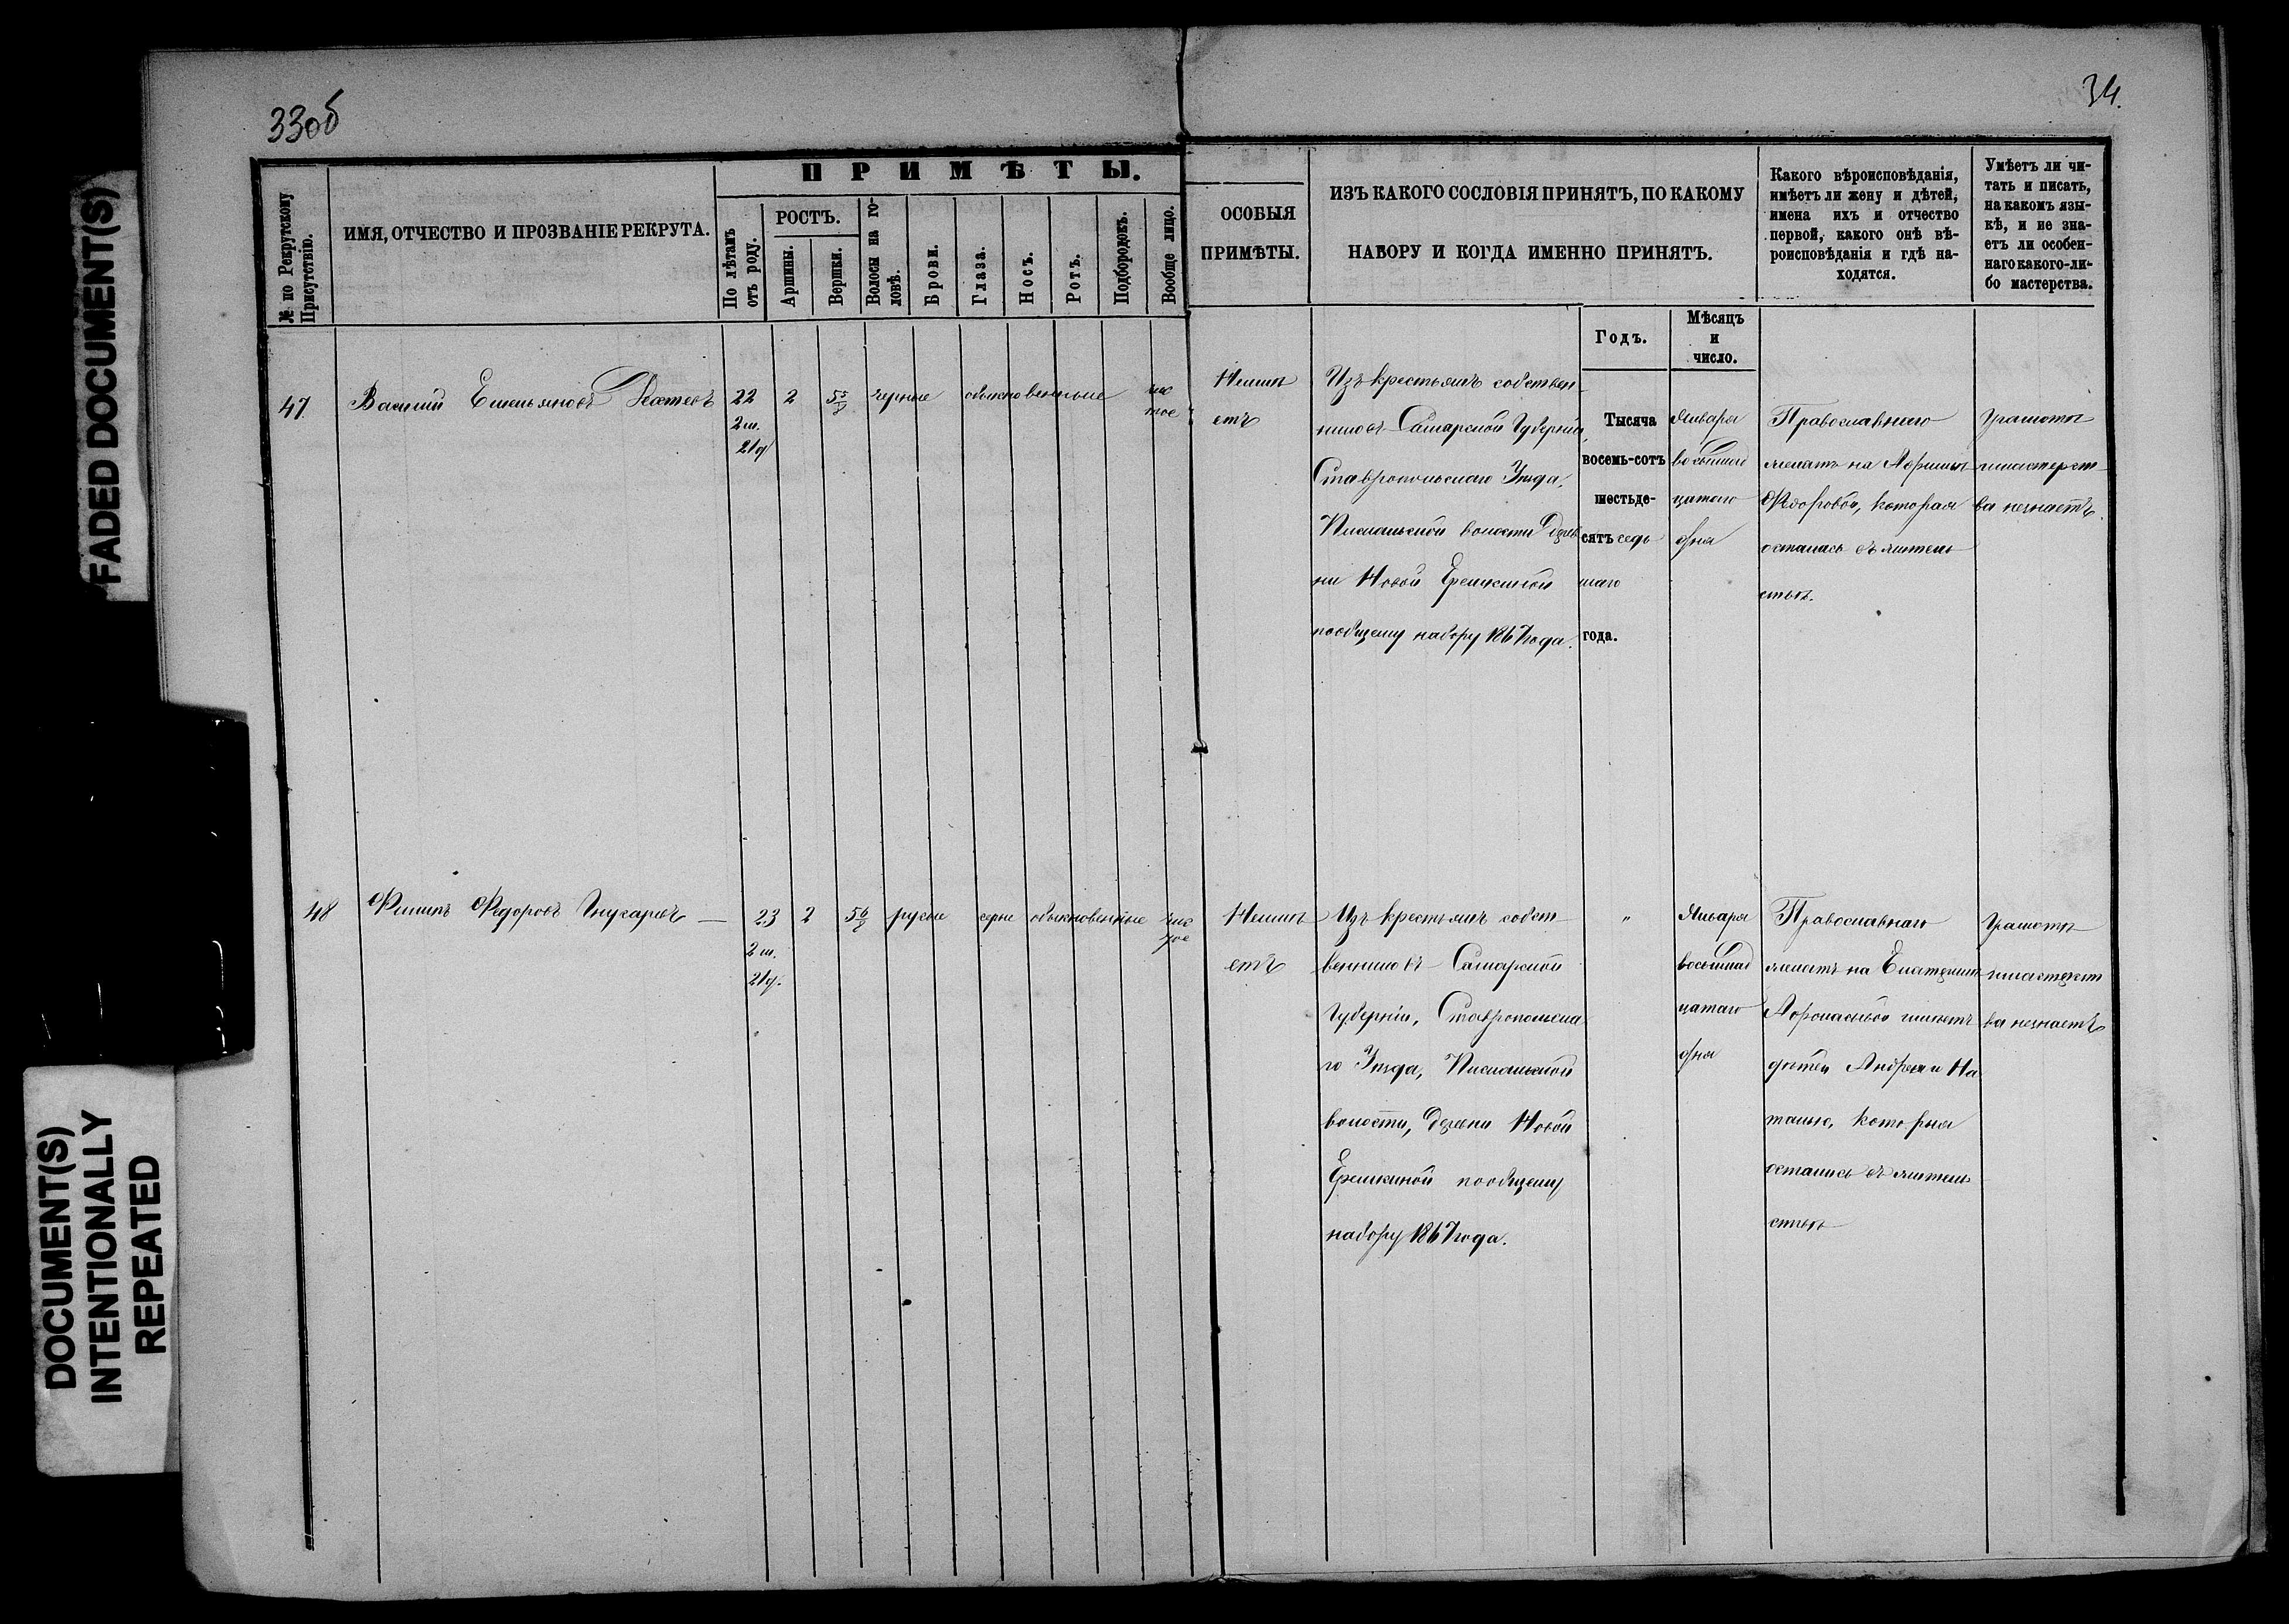 33об
34.
FADED DOCUMENT(S)
DOCUMENT(S)
INTENTIONALLY
REPEATED
№ по Рекрутскому
Присутствію.
ИМЯ, ОТЧЕСТВО И ПРОЗВАНІЕ РЕКРУТА.
ПРИМѢТЫ.
По лѣтамъ
отъ роду.
РОСТЪ.
Аршины.
Вершки.
Волосы на го-
ловѣ.
Брови.
Глаза.
Носъ.
Ротъ.
Подбородокъ.
Вообще лицо.
ОСОБЫЯ
ПРИМѢТЫ.
ИЗЪ КАКОГО СОСЛОВІЯ ПРИНЯТЪ, ПО КАКОМУ
НАБОРУ И КОГДА ИМЕННО ПРИНЯТЪ.
Годъ.
Мѣсяцъ
и
число.
Какого вѣроисповѣданія,
имѣетъ ли жену и дѣтей,
имена ихъ и отчество
первой, какого онѣ вѣ-
роисповѣданія и гдѣ на-
ходятся.
Умѣетъ ли чи-
тать и писать,
на какомъ язы-
кѣ, и не зна-
етъ ли особен-
наго какого-ли-
бо мастерства.
47.
Василій Емельяновъ
22
2 м.
21 д
2
5 5/8
черные
обыкновенные
чис
тое
Неимѣ
етъ
Изъ крестьянъ собствен-
никовъ Самарской Губерніи,
Ставропольскаго Уѣзда,
волости Дерев
ни Новой Еремкиной
пообщему набору 1867 года.
Тысяча
восемь-сотъ
шестьде-
сятъ седь
маго
года.
Января
восемнад
цатаго
дня
Православнаго
женатъ на
Ѳедоровой, которая
осталась въ житель
ствѣ.
Грамоты
имастерст
ва незнаетъ.
48
Филипъ Ѳедоровъ
23
2 м.
21 д.
2
5 6/8
русые
серые
обыкновенные
чис
тое
Неимѣ
етъ
Изъ крестьянъ собст
венниковъ Самарской
Губерніи, Ставропольска
го Уѣзда,
волости, Деревни Новой
Еремкиной пообщему
набору 1867 года.
"
Января
восемнад
цатаго
дня
Православнаго
женатъ на Екатеринѣ
имѣетъ
дѣтей Андрея и На
талью, которыя
остались въ житель
ствѣ
Грамоты
имастерст
ва незнаетъ